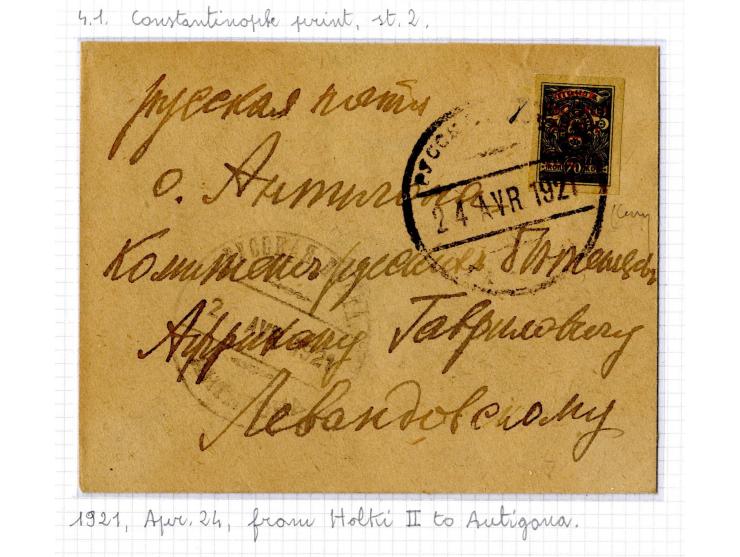 4.1. Constantinople print, st. 2.
русская почта
о. Антигона
24 AVR 1921
Комитет русских Беженцев
РУССКАЯ
Африкану Гавриловичу
Левандовскому
1921, Apr. 24, from Holki II to Antigona.